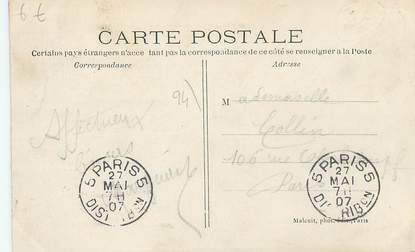 6 €
CARTE POSTALE
Certains pays étrangers n'acce tant pas la correspondance de ce côté se renseigner à la Poste
Correspondance
Adresse
94)
Mademoiselle
Collin
106 rue
Paris
Affectueux
PARIS 5
27
MAI
7H
07
5 DISTRIBON
PARIS 5
27
MAI
7H
07
5 DISTRIBON
Malcuit, phot. Paris